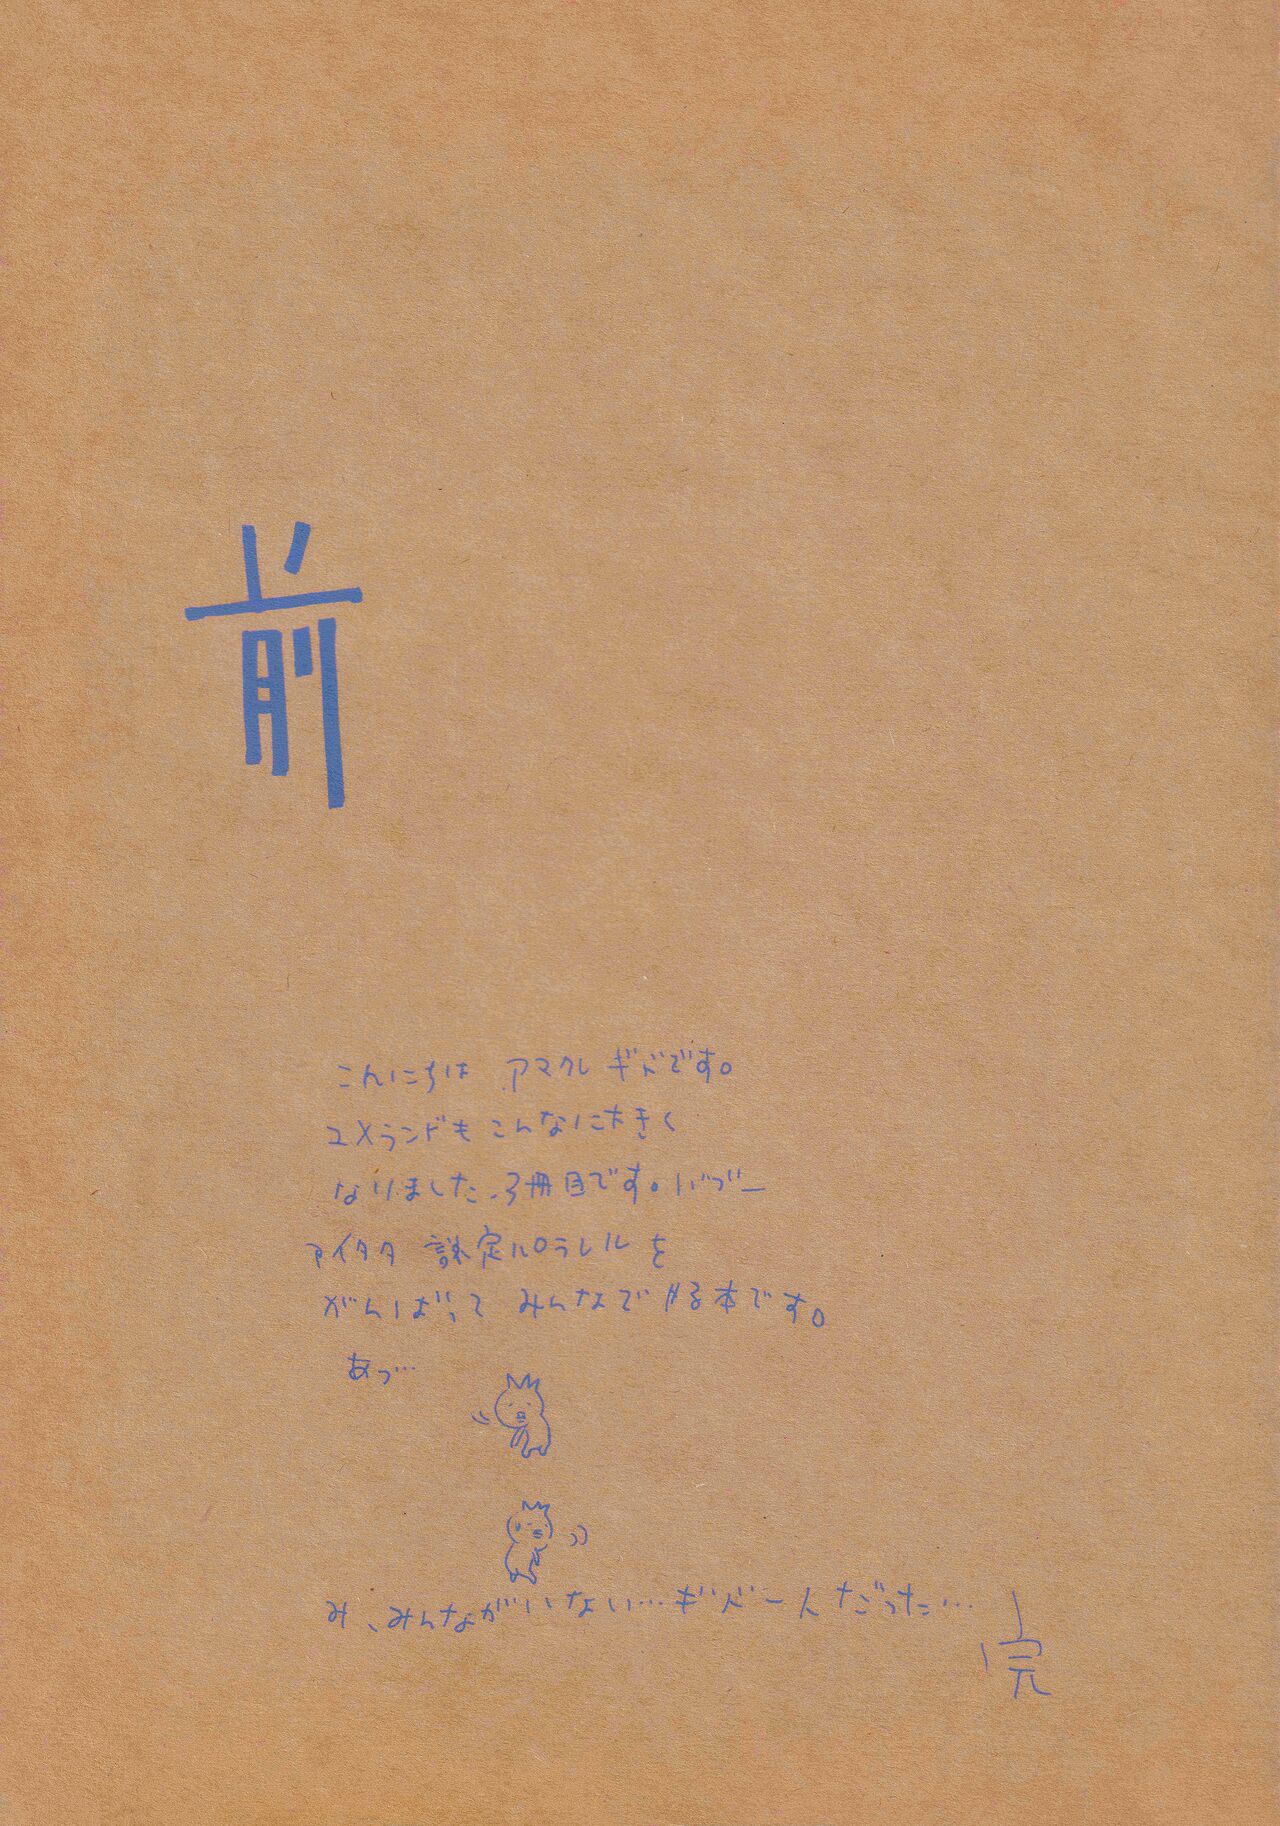 前
こんにちは アマクレ ギドです。
ユメランドも こんなに大きく
なりました。3冊目です。バブー
アイタタ 設定パラレル を
がんばって みんなで 本です。
あっ…
み、みんながいない…ギド一人だった…
完